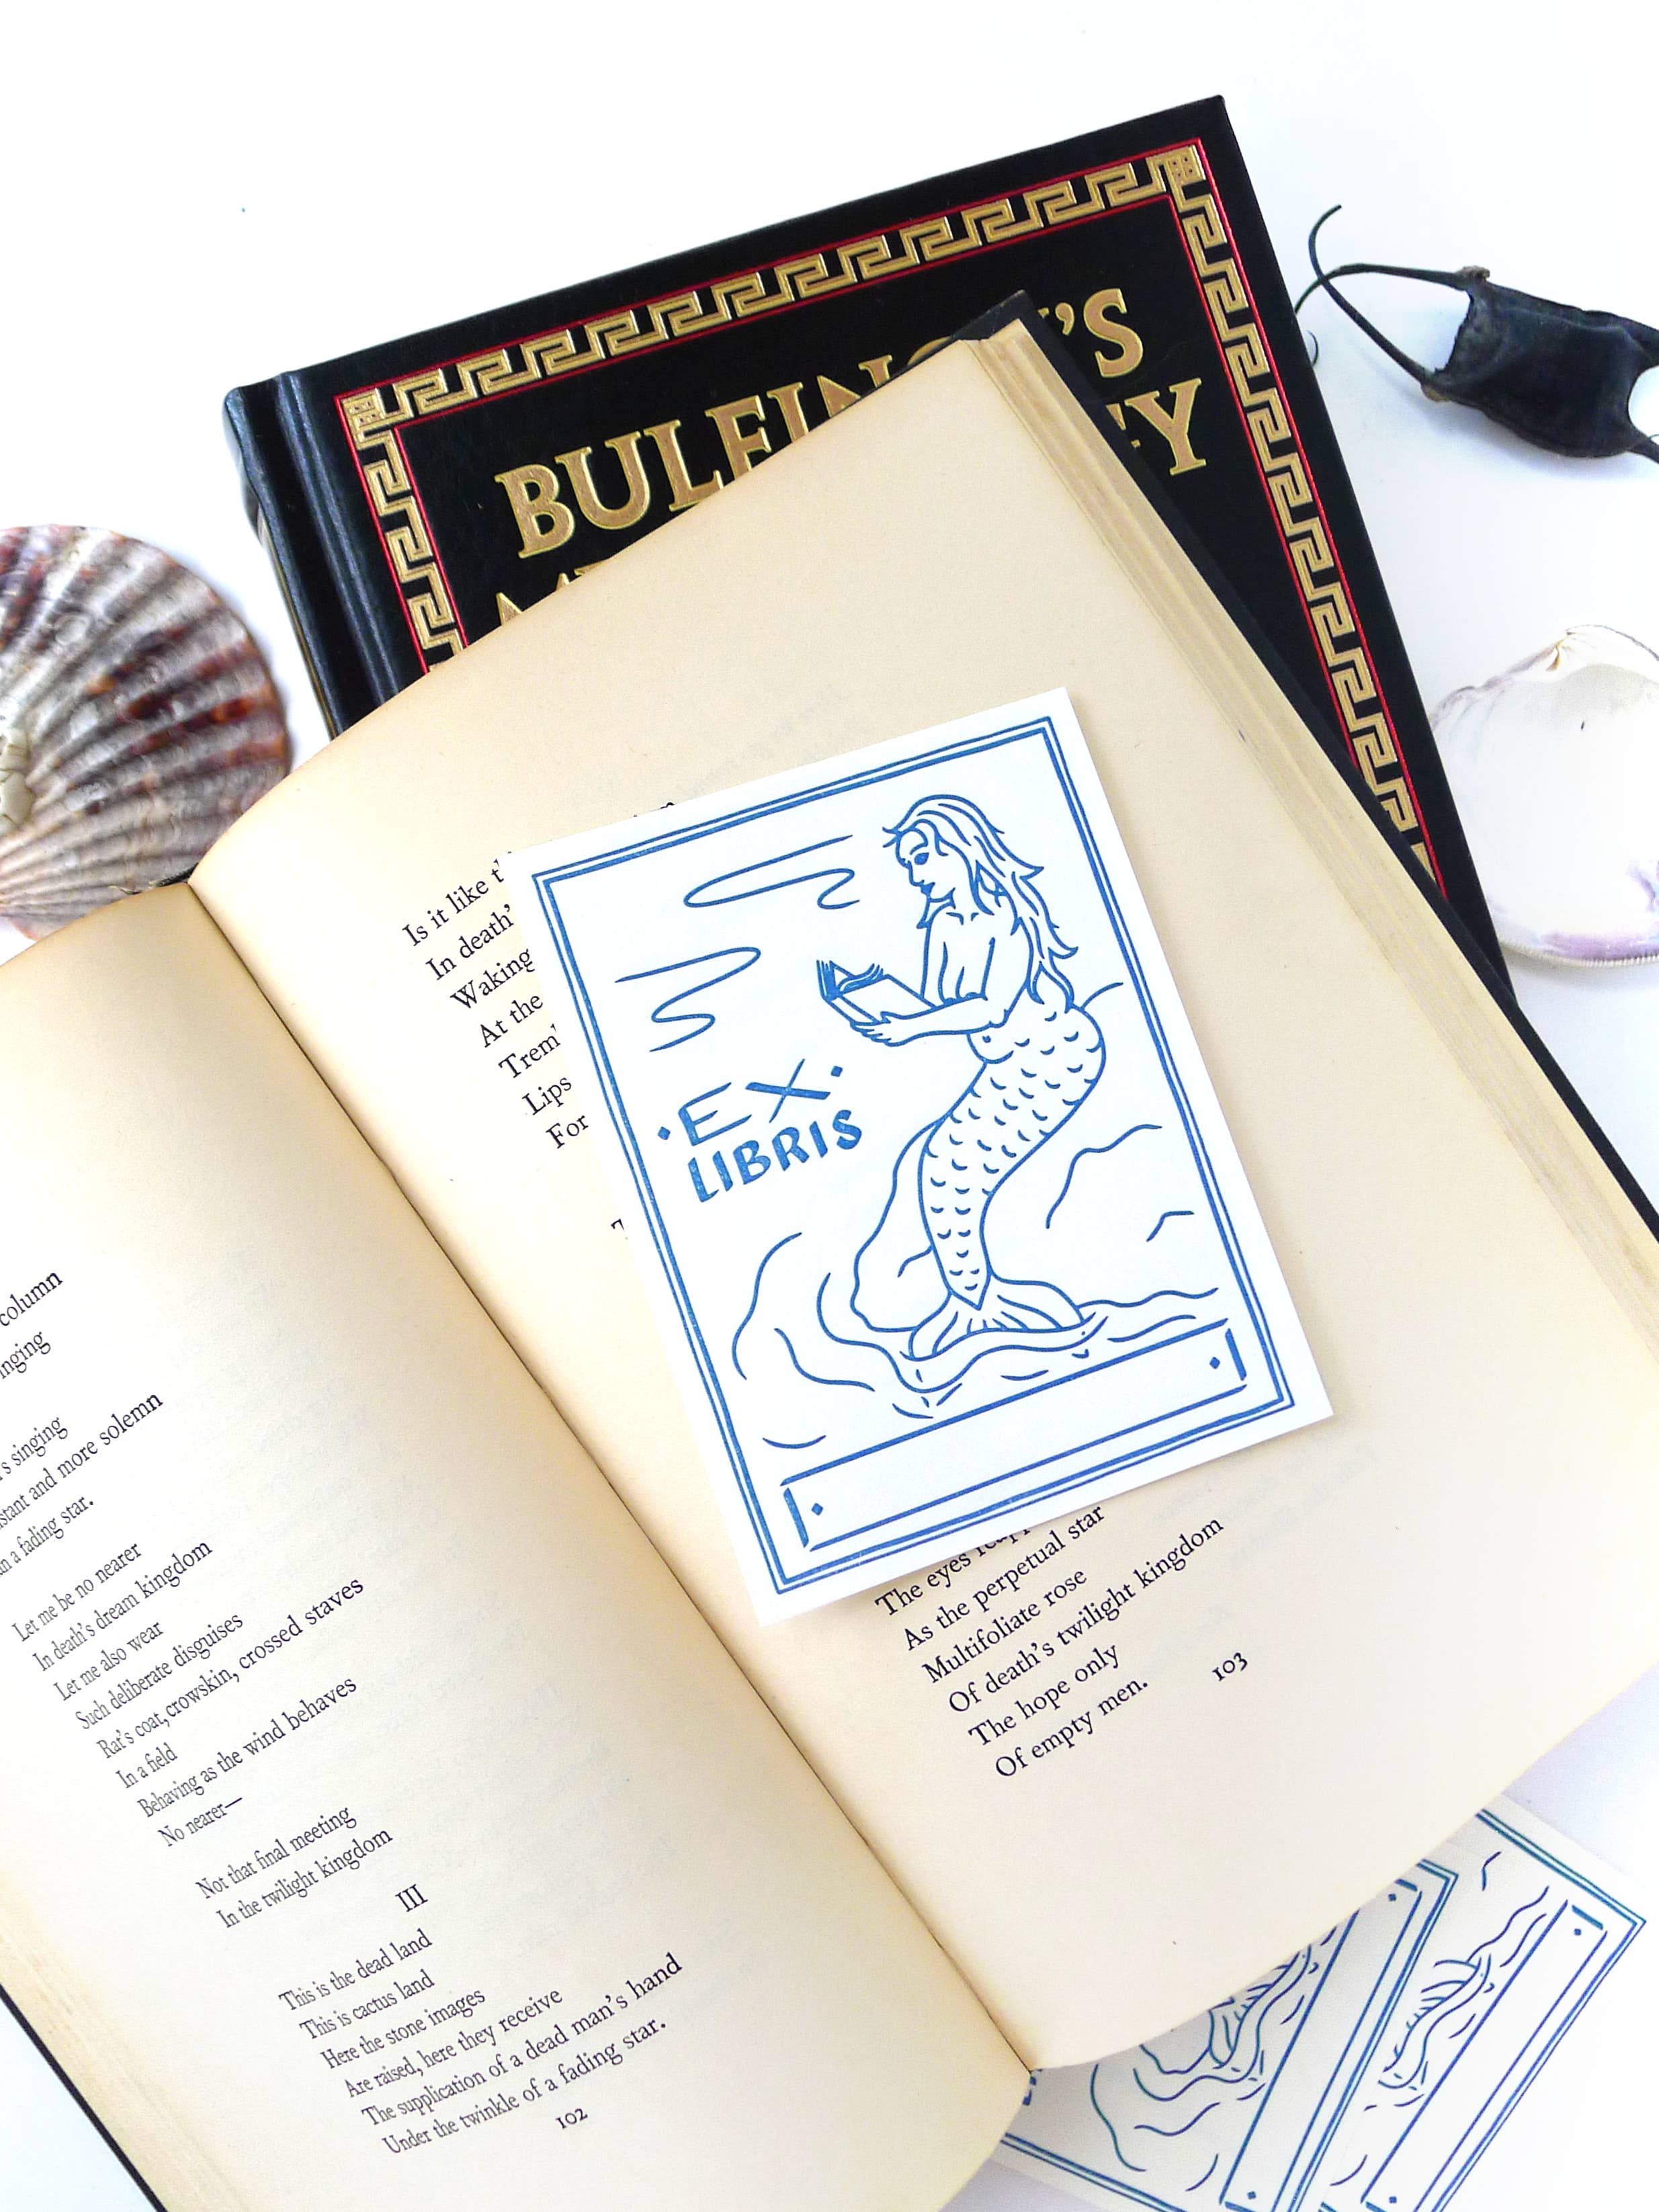 BULFIN
'S
column
singing
's singing
and more solemn
a fading star.
Let me be no nearer
In death's dream kingdom
Let me also wear
Such deliberate disguises
Rat's coat, crowskin, crossed staves
In a field
Behaving as the wind behaves
No nearer—
Not that final meeting
In the twilight kingdom
III
This is the dead land
This is cactus land
Here the stone images
Are raised, here they receive
The supplication of a dead man's hand
Under the twinkle of a fading star.
102
Is it like
In death'
Waking
At the
Lips
For
EX
LIBRIS
The eyes
As the perpetual star
Multifoliate rose
Of death's twilight kingdom
The hope only
Of empty men.
103